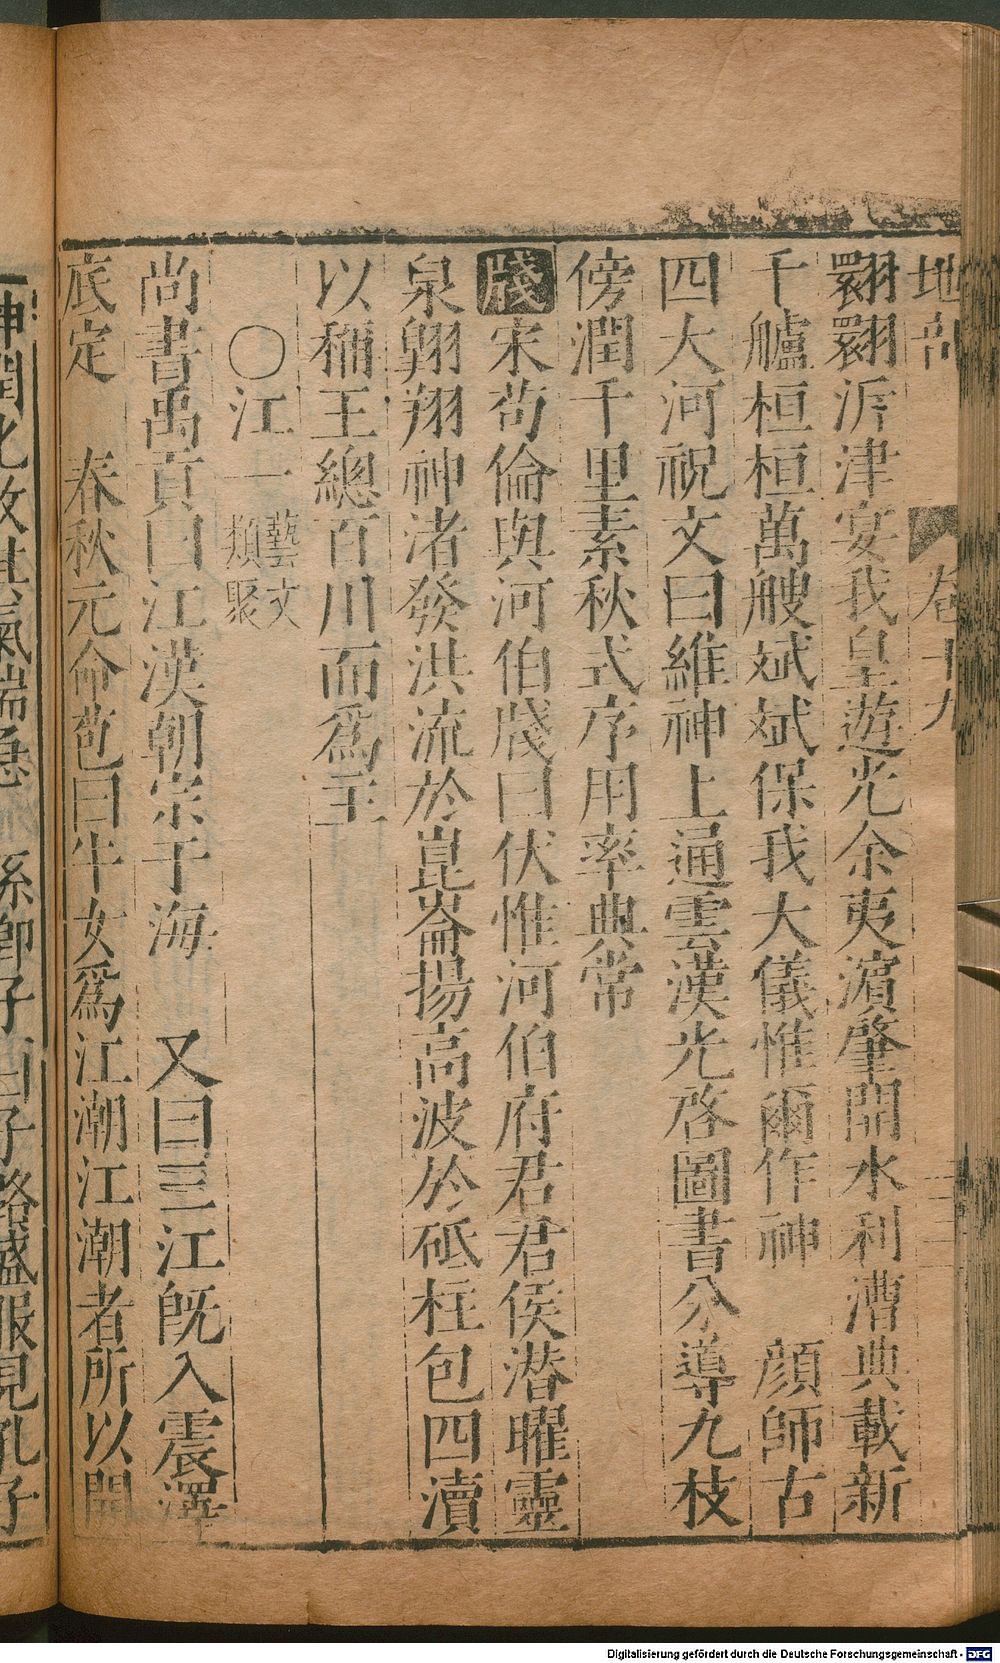 地部 卷十九
翾翾泝津宴我皇遊光余夷濵肇開水利漕典載新
千艫桓桓萬艘斌斌保我大儀惟爾作神 顔師古
四大河祝文曰維神上通雲漢光啓圖書分導九枝
傍潤千里素秋式序用率典常
牋宋荀倫與河伯牋曰伏惟河伯府君君侯潜曜靈
泉翺翔神渚發洪流於崑崙揚高波於砥柱包四瀆
以稱王總百川而爲主
〇江一 藝文類聚
尚書禹貢曰江漢朝宗于海 又曰三江旣入震澤
底定 春秋元命苞曰牛女爲江潮江潮者所以開
Digitalisierung gefördert durch die Deutsche Forschungsgemeinschaft - DFG